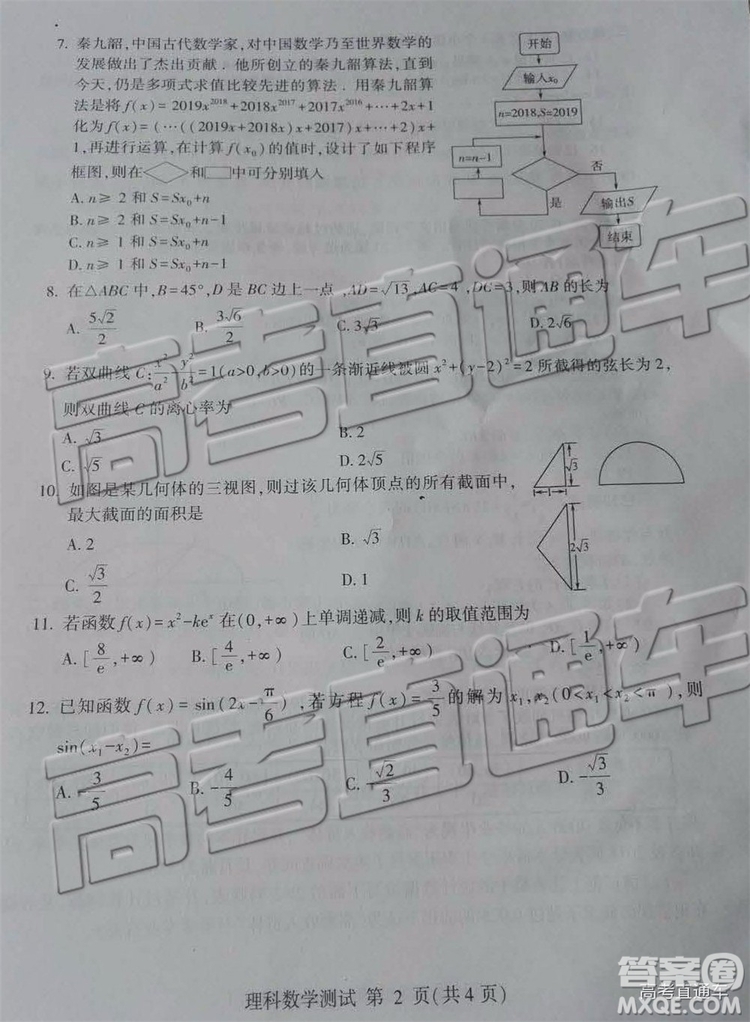 7. 秦九韶,中国古代数学家,对中国数学乃至世界数学的
发展做出了杰出贡献．他所创立的秦九韶算法,直到
今天,仍是多项式求值比较先进的算法．用秦九韶算
法是将f(x)=2019x²⁰¹⁸+2018x²⁰¹⁷+2017x²⁰¹⁶+…+2x+1
化为f(x)=(…((2019x+2018)x+2017)x+…+2)x+
1,再进行运算,在计算f(x₀)的值时,设计了如下程序
框图,则在◇和▭中可分别填入
A. n≥2和S=Sx₀+n
B. n≥2和S=Sx₀+n-1
C. n≥1和S=Sx₀+n
D. n≥1和S=Sx₀+n-1
开始
输入x₀
n=2018,S=2019
n=n-1
否
是
输出S
结束
8. 在△ABC中,B=45°,D是BC边上一点,AD=√13,AC=4,DC=3,则AB的长为
A. 5√2/2 B. 3√6/2 C. 3√3 D. 2√6
9. 若双曲线C:x²/a²-y²/b²=1(a>0,b>0)的一条渐近线被圆x²+(y-2)²=2所截得的弦长为2,
则双曲线C的离心率为
A. √3 B. 2
C. √5 D. 2√5
10. 如图是某几何体的三视图,则过该几何体顶点的所有截面中,
最大截面的面积是
A. 2 B. √3
C. √3/2 D. 1
√3
1
2√3
11. 若函数f(x)=x²-keˣ在(0,+∞)上单调递减,则k的取值范围为
A. [8/e,+∞) B. [4/e,+∞) C. [2/e,+∞) D. [1/e,+∞)
12. 已知函数f(x)=sin(2x-π/6),若方程f(x)=3/5的解为x₁,x₂(0<x₁<x₂<π),则
sin(x₁-x₂)=
A. -3/5 B. -4/5 C. -√2/3 D. -√3/3
理科数学测试 第 2 页(共4页)
高考直通车
高考直通车
答案圈
高考直通车
MXQE.COM